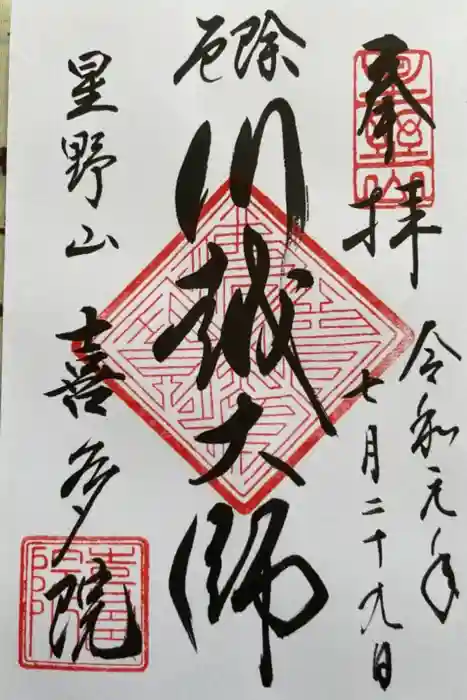 奉拝
令和元年
七月二十九日
厄除
川越大師
星野山
喜多院
喜多院